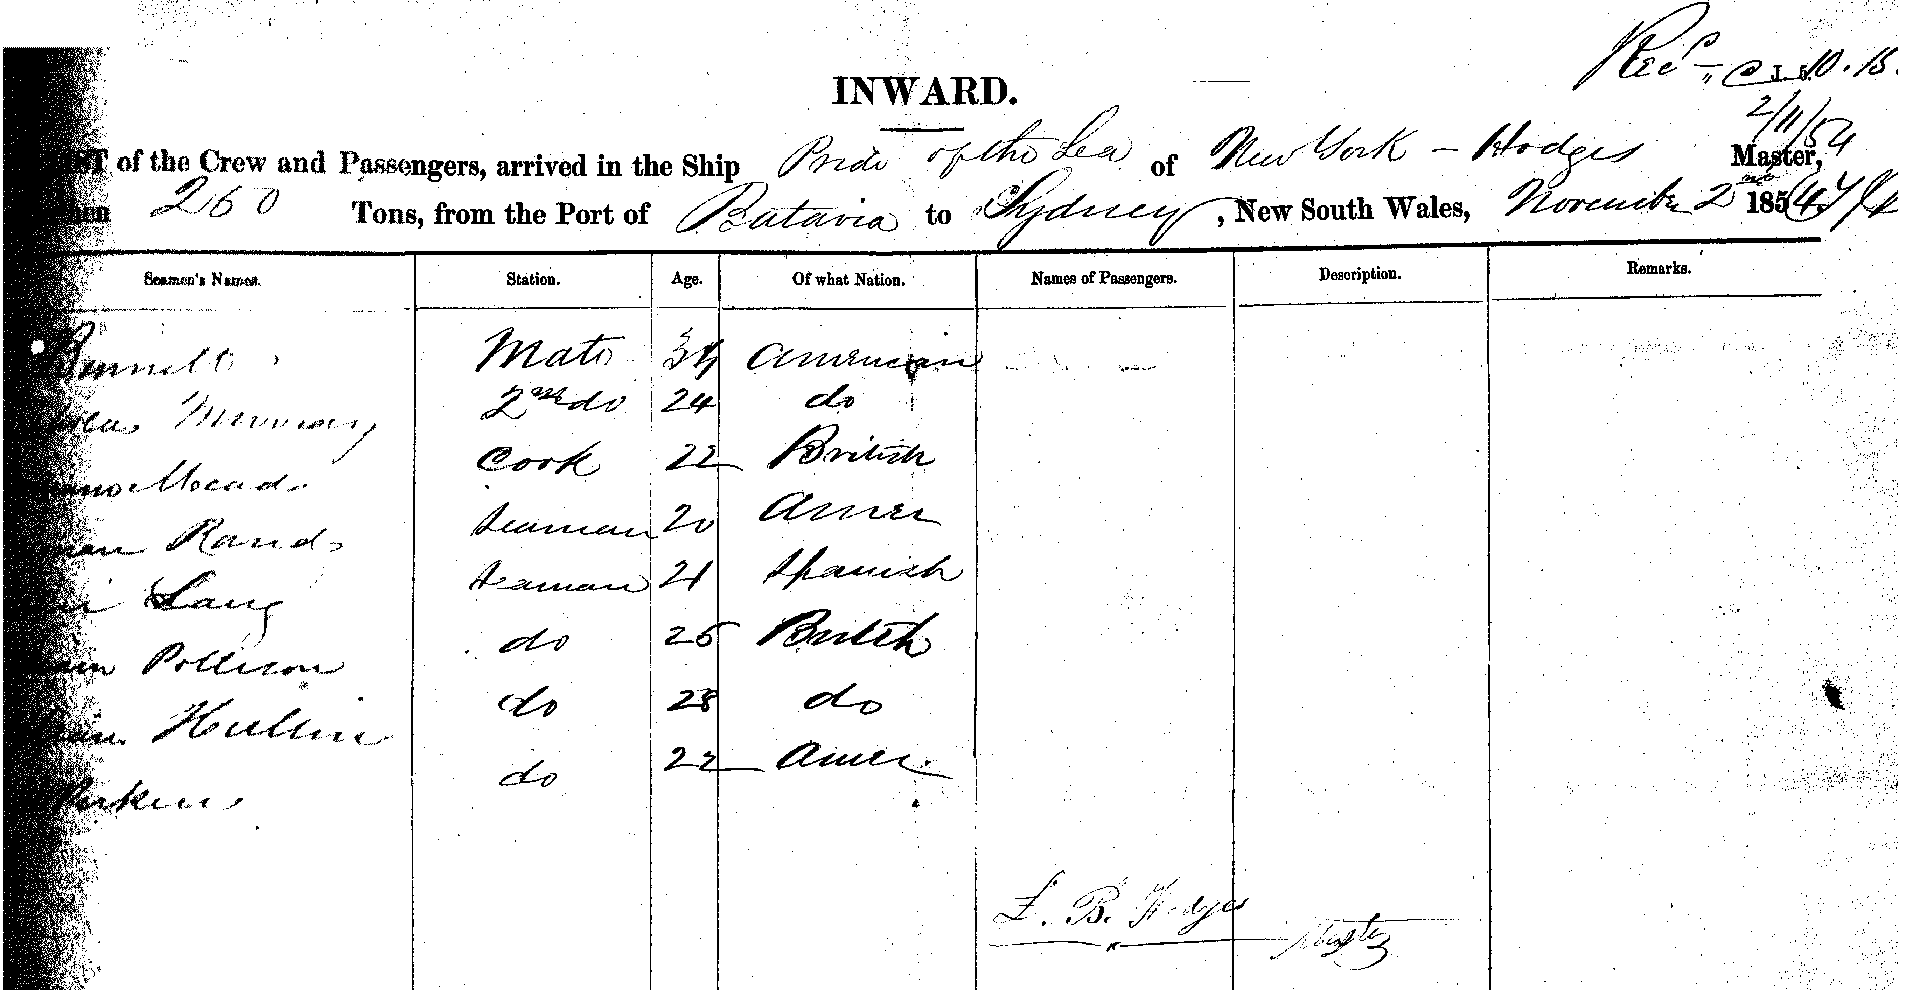 INWARD.
2/11/54
of the Crew and Passengers, arrived in the Ship Pride of the Sea of New York - Hodges Master,
260 Tons, from the Port of Batavia to Sydney, New South Wales, November 2nd 1854
Seamen's Names. Station. Age. Of what Nation. Names of Passengers. Description. Remarks.
Bennett Mate 34 American
2nd do 24 do
Mead Cook 22 British
Rand Seaman 20 Amer
Lang Seaman 21 Spanish
Pollison do 25 British
Hullin do 28 do
Perkins do 22 Amer.
L. B. Hodges
Master